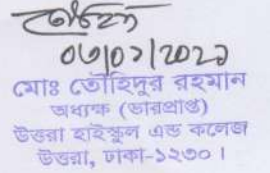 তৌহিদ
০৩/০১/২০২১
মোঃ তৌহিদুর রহমান
অধ্যক্ষ (ভারপ্রাপ্ত)
উত্তরা হাইস্কুল এন্ড কলেজ
উত্তরা, ঢাকা-১২৩০।